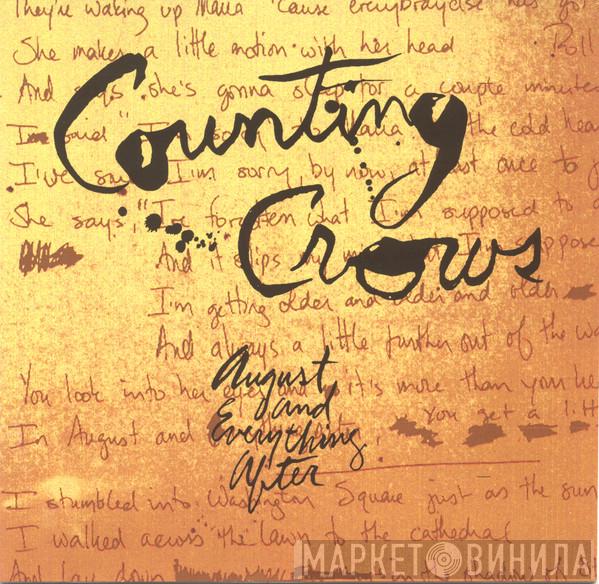 They're waking up Maria 'cause everybody else has got
She makes a little motion with her head
And says she's gonna sleep for a couple minutes
Counting
I said I'm sorry Maria the cold hea
I've I'm sorry by now, at once to
She says, "I've forgotten what I'm supposed to
Crows
And it slips my
I'm getting older and older and older
And always a little further out of the wa
August
and
Everything
After
You look into her it's more than your he
In August and You get a litt
I stumbled into Washington Square just as the sun
I walked across the lawn to the cathedral
And lay down in the
МАРКЕТ ВИНИЛА